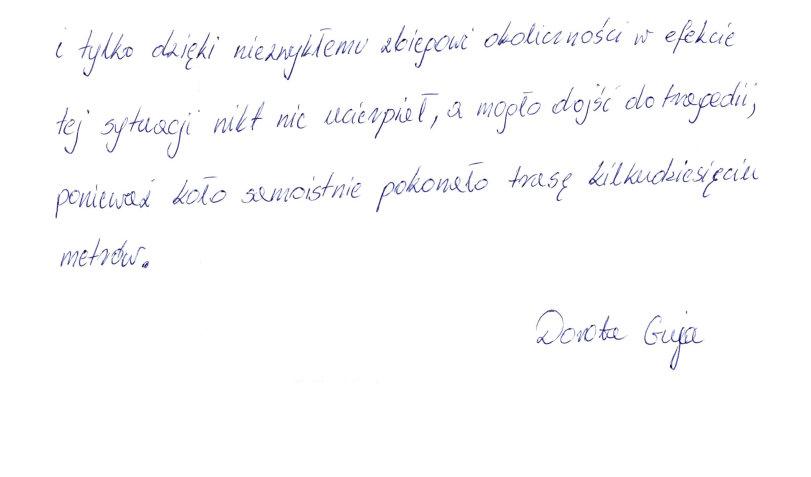 i tylko dzięki niezwykłemu zbiegowi okoliczności w efekcie
tej sytuacji nikt nie ucierpiał, a mogło dojść do tragedii,
ponieważ koło samoistnie pokonało trasę kilkudziesięciu
metrów.
Dorota Guja